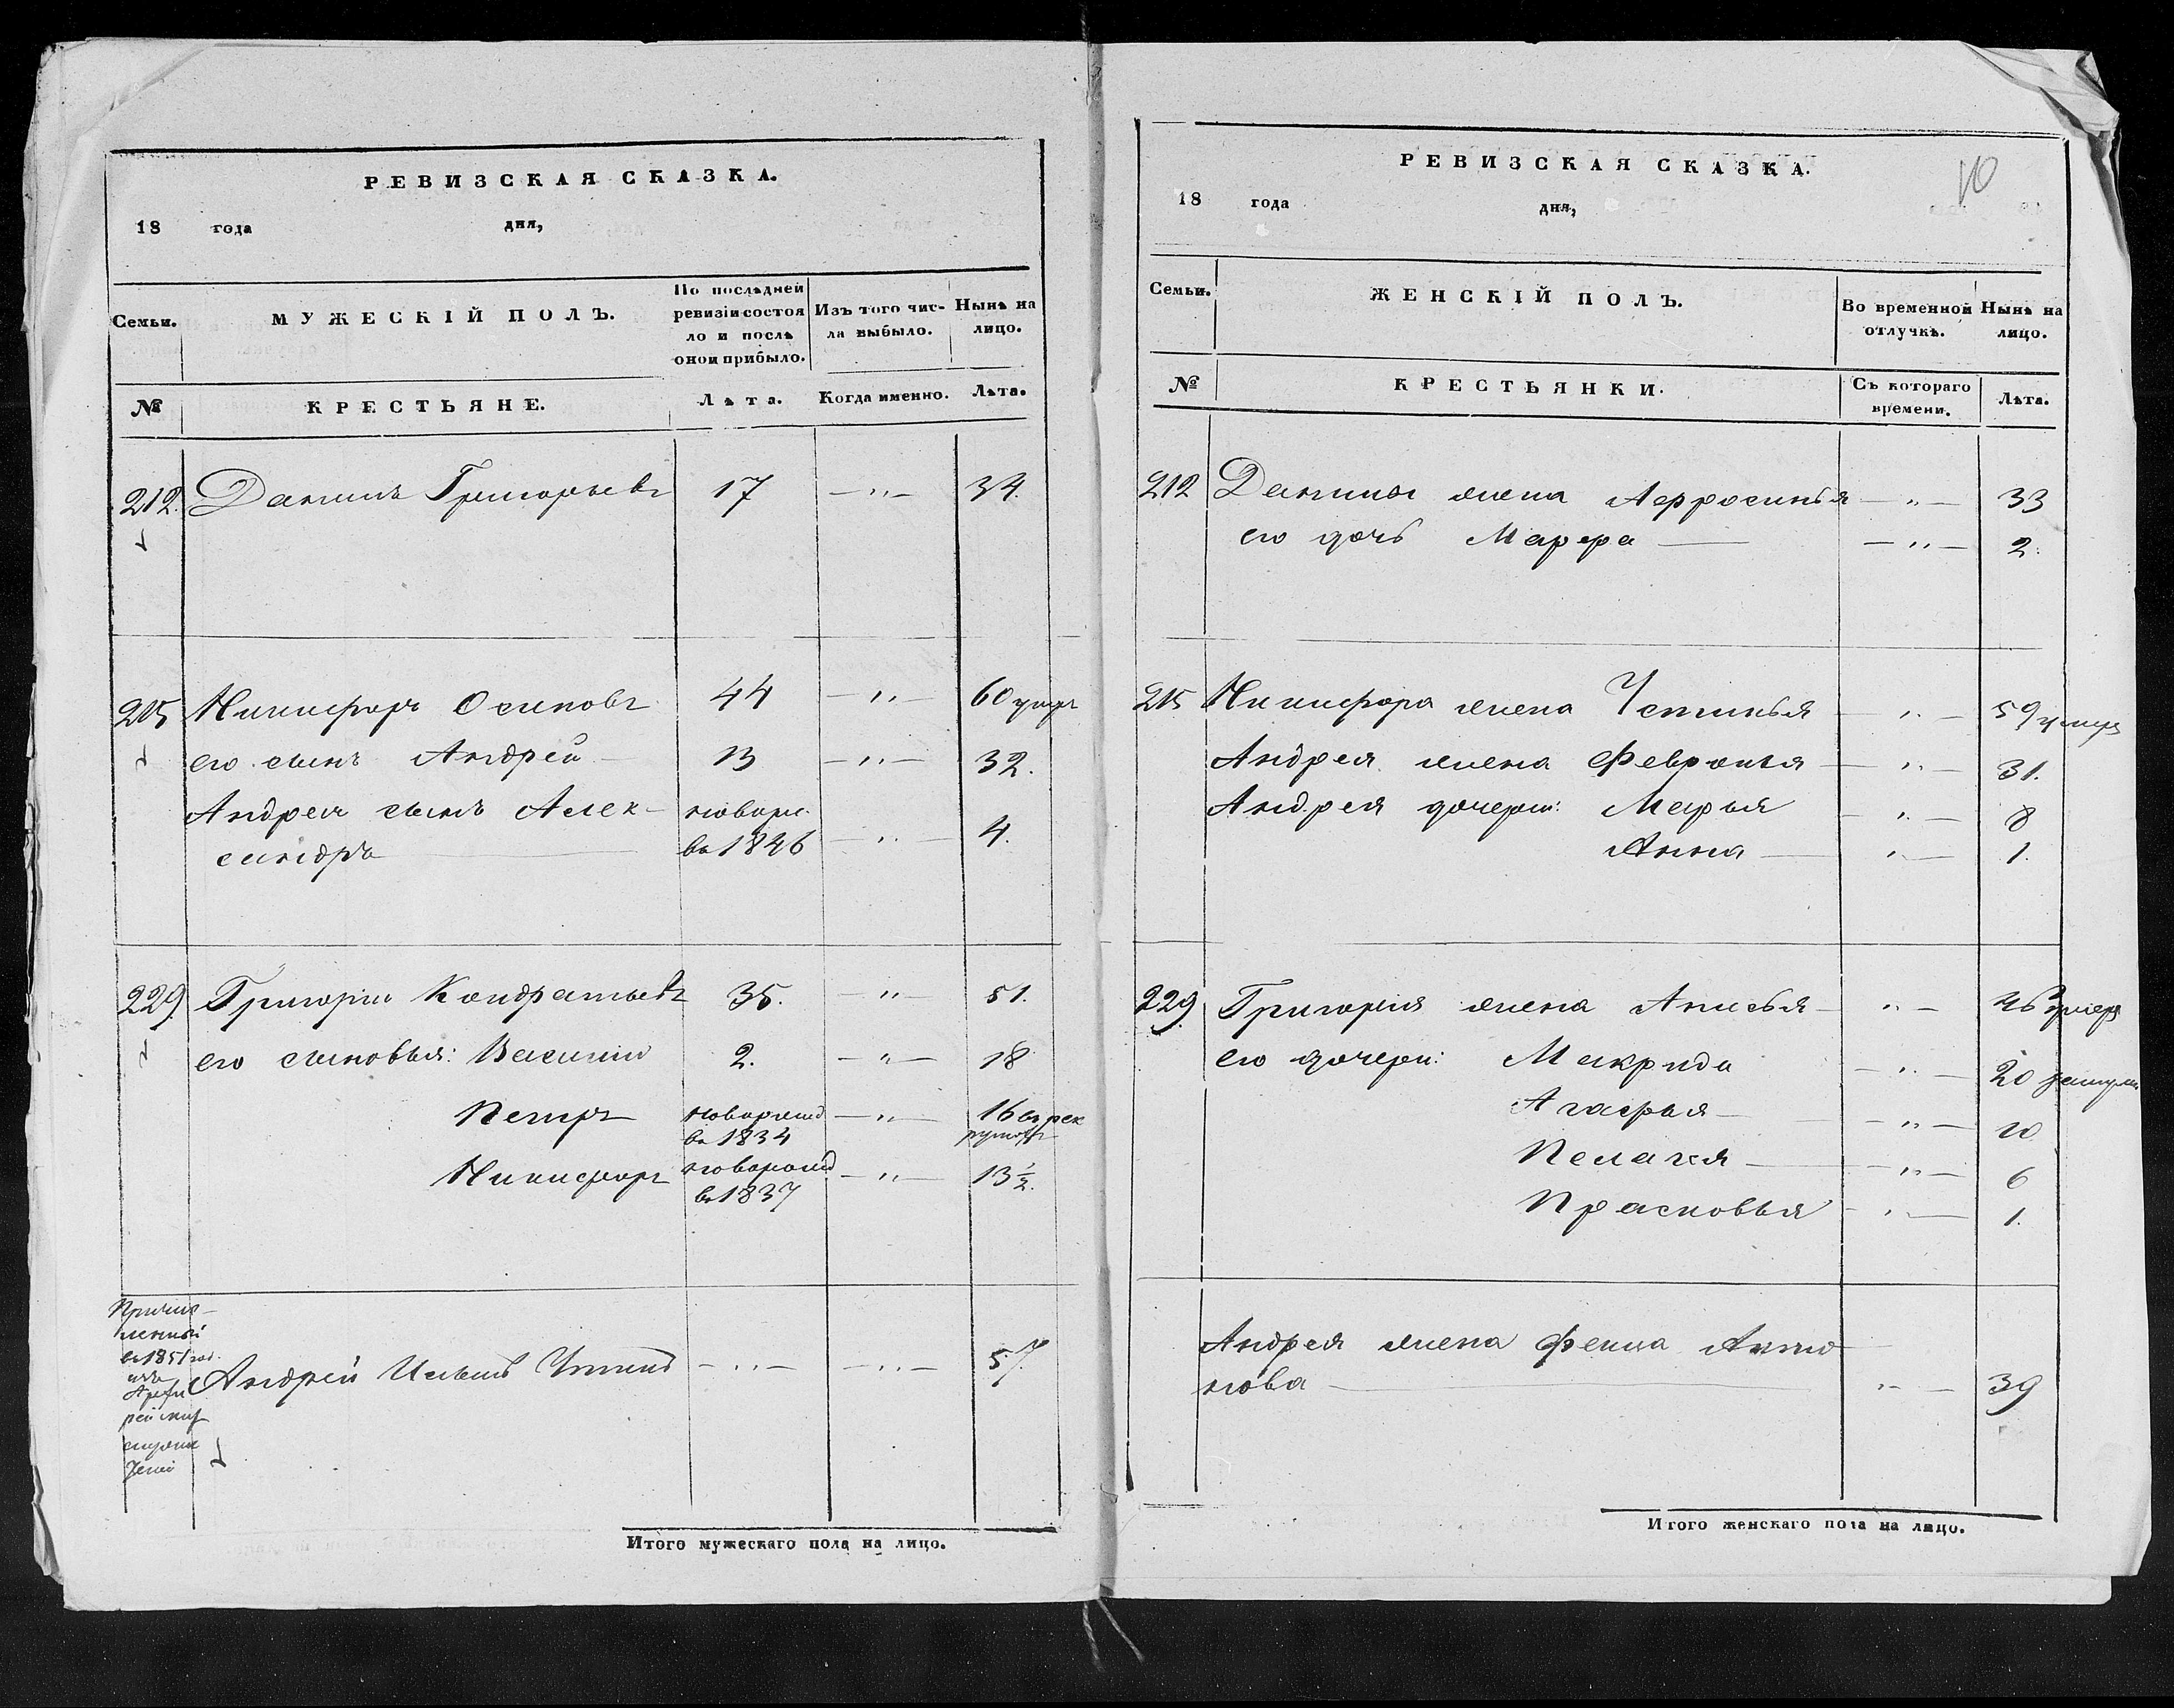 РЕВИЗСКАЯ СКАЗКА.
18 года дня,
Семьи. МУЖЕСКІЙ ПОЛЪ. По послѣдней ревизіи состояло и послѣ оной прибыло. Изъ того числа выбыло. Нынѣ на лицо.
№ КРЕСТЬЯНЕ. Лѣта. Когда именно. Лѣта.
212. Данилъ Григорьевъ 17 — " — 34.
215 Никифоръ Осиповъ 44 — " — 60 умеръ
его сынъ Андрей — 13 — " — 32.
Андрея сынъ Алек- новорж.
сандръ въ 1846 — " — 4.
229. Григорій Кондратьевъ 35. " — 51.
его сыновья: Василий 2. — " — 18
Петръ новорожд — " — 16 въ рек
въ 1834 руты
Никифоръ новорожд — " — 13 ½.
въ 1837
Причис-
ленный
въ 1851 год.
изъ
Андрей Ильинъ — " — — " — 57
Итого мужескаго пола на лицо.
РЕВИЗСКАЯ СКАЗКА.
10
18 года дня,
Семьи. ЖЕНСКІЙ ПОЛЪ. Во временной отлучкѣ. Нынѣ на лицо.
№ КРЕСТЬЯНКИ. Съ котораго времени. Лѣта.
212 Данилы жена Афросинья — " — 33
его дочь Марфа — — " — 2.
215 Никифора жена Устинья — " — 59 умер
Андрея жена Февронья — " — 31.
Андрея дочери: Марья — " — 8
Анна — " — 1.
229. Григорія жена Анисья — " — 46 умер
его дочери: Макрида — " — 20 замуж
Агафья — — " — 10
Пелагея — — " — 6
Прасковья — " — 1.
Андрея жена Фекла Анто-
нова — " — 39
Итого женскаго пола на лицо.